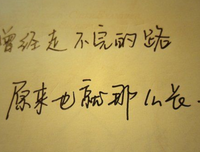 曾经走不完的路
原来也就那么长.